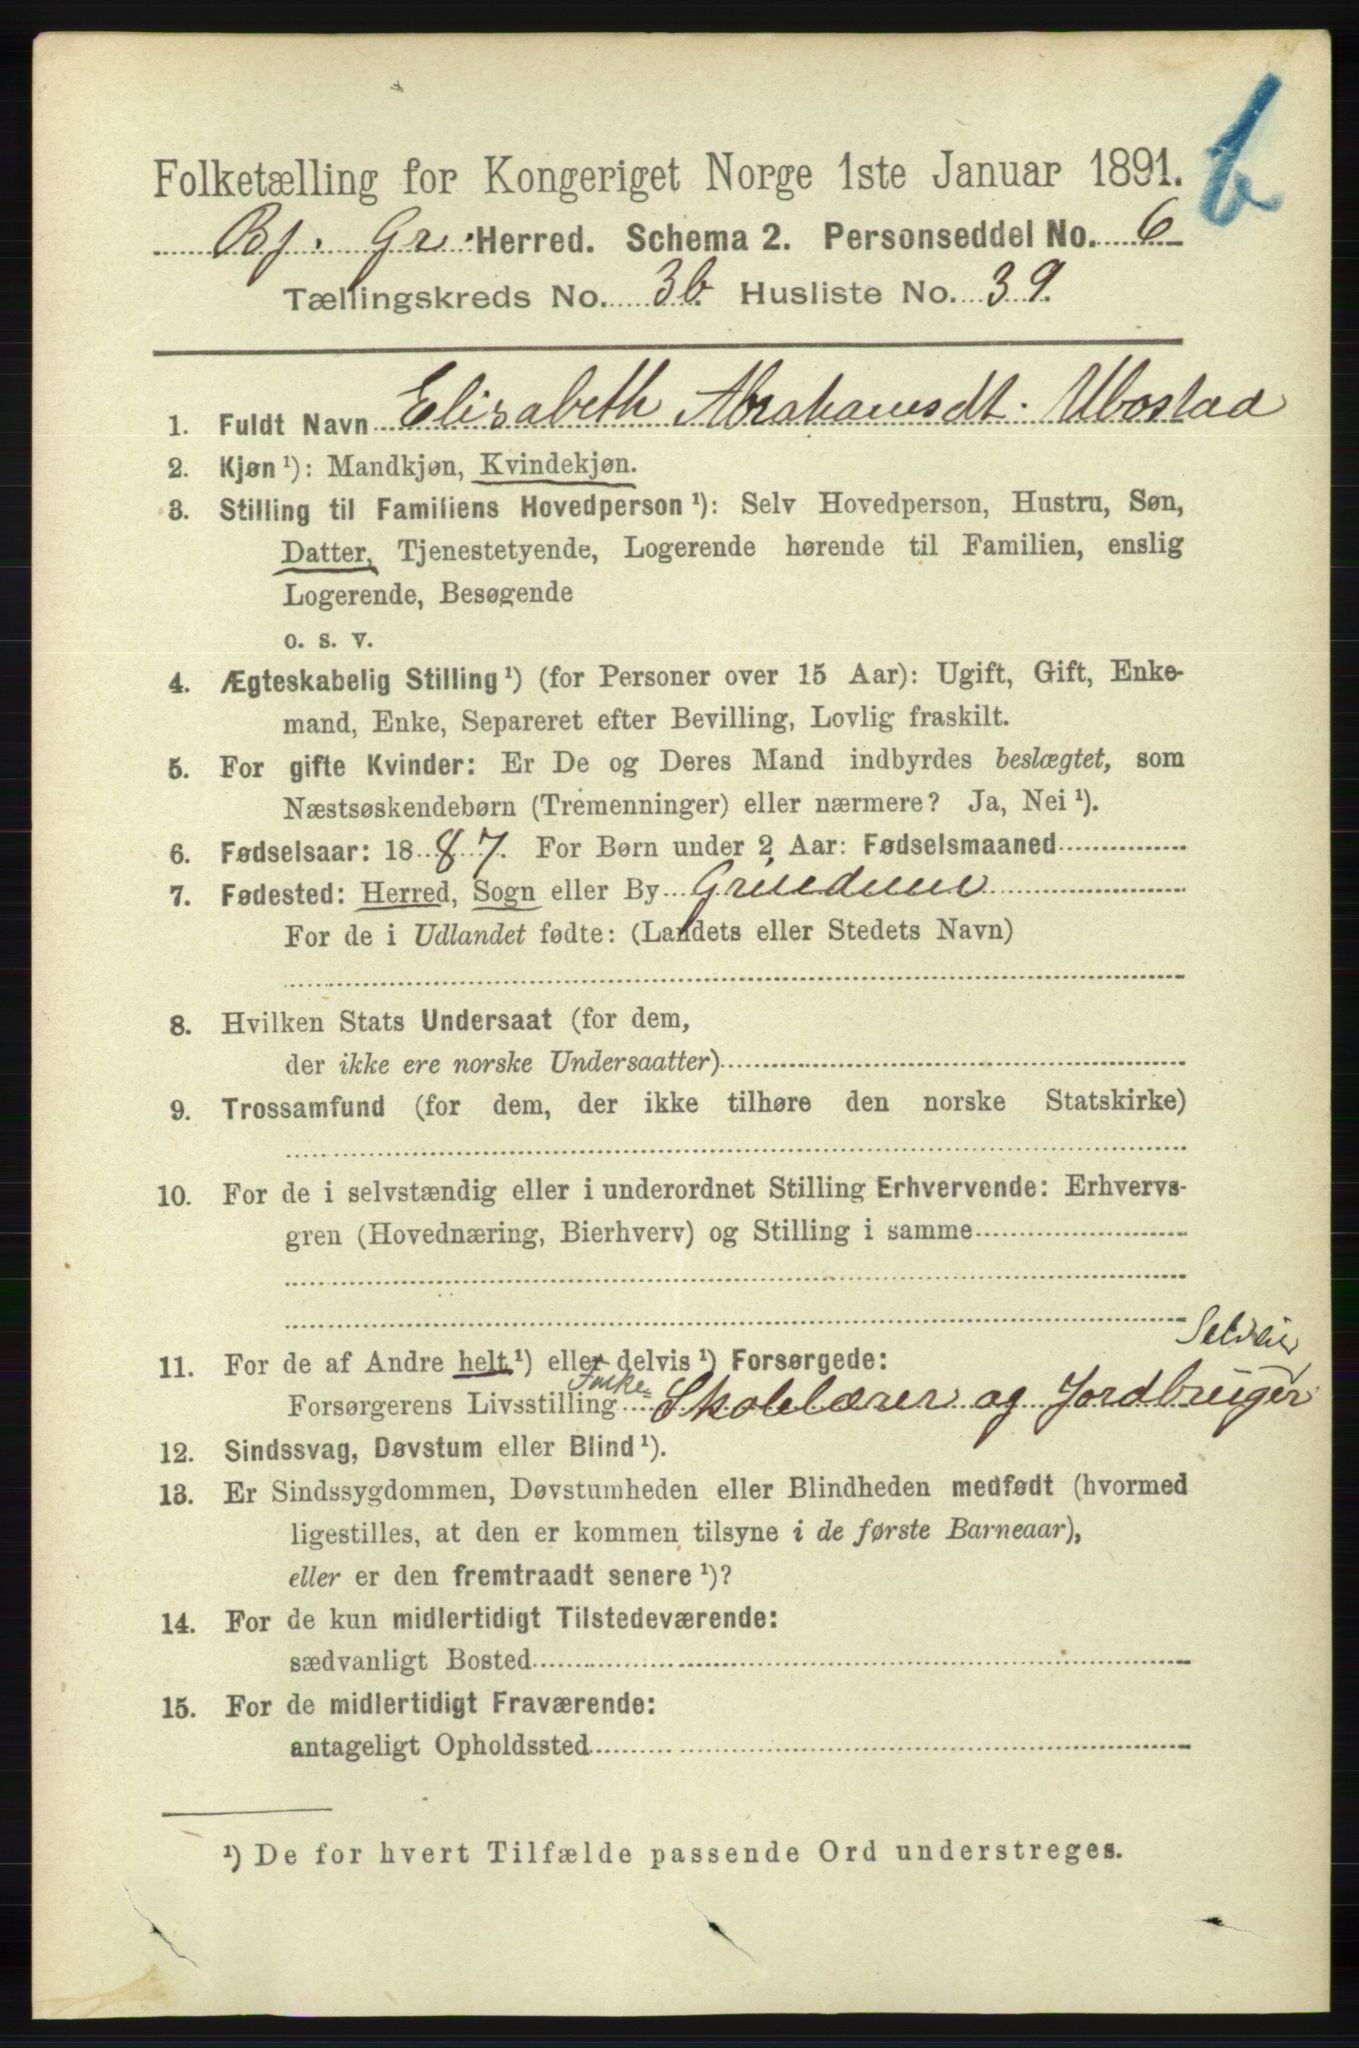 b
Folketælling for Kongeriget Norge 1ste Januar 1891.
Bj. Gr. Herred. Schema 2. Personseddel No. 6
Tællingskreds No. 3b. Husliste No. 39.
1. Fuldt Navn Elisabeth Abrahamsdt. Ubostad
2. Kjøn ¹): Mandkjøn, Kvindekjøn.
3. Stilling til Familiens Hovedperson ¹): Selv Hovedperson, Hustru, Søn,
Datter, Tjenestetyende, Logerende hørende til Familien, enslig
Logerende, Besøgende
o. s. v.
4. Ægteskabelig Stilling ¹) (for Personer over 15 Aar): Ugift, Gift, Enke-
mand, Enke, Separeret efter Bevilling, Lovlig fraskilt.
5. For gifte Kvinder: Er De og Deres Mand indbyrdes beslægtet, som
Næstsøskendebørn (Tremenninger) eller nærmere? Ja, Nei ¹).
6. Fødselsaar: 1887. For Børn under 2 Aar: Fødselsmaaned
7. Fødested: Herred, Sogn eller By Grindum
For de i Udlandet fødte: (Landets eller Stedets Navn)
8. Hvilken Stats Undersaat (for dem,
der ikke ere norske Undersaatter)
9. Trossamfund (for dem, der ikke tilhøre den norske Statskirke)
10. For de i selvstændig eller i underordnet Stilling Erhvervende: Erhvervs-
gren (Hovednæring, Bierhverv) og Stilling i samme
Selveie
11. For de af Andre helt ¹) eller delvis ¹) Forsørgede:
Forsørgerens Livsstilling Folke= Skolelærer og Jordbruger
12. Sindssvag, Døvstum eller Blind ¹).
13. Er Sindssygdommen, Døvstumheden eller Blindheden medfødt (hvormed
ligestilles, at den er kommen tilsyne i de første Barneaar),
eller er den fremtraadt senere ¹)?
14. For de kun midlertidigt Tilstedeværende:
sædvanligt Bosted
15. For de midlertidigt Fraværende:
antageligt Opholdssted
¹) De for hvert Tilfælde passende Ord understreges.